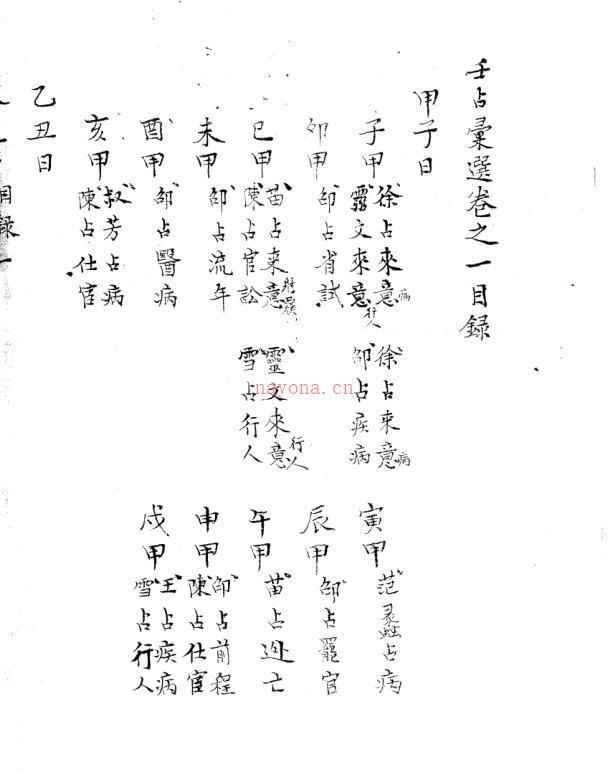 壬占彙選卷之一目錄
甲子日
子甲 徐占來意病 徐占來意病
靈文來意行人 邵占疾病
寅甲 范蠡占病
卯甲 邵占省試
辰甲 邵占罷官
巳甲 苗占來意 靈文來意行人
陳占官訟 雪占行人
午甲 苗占逃亡
未甲 邵占流年
申甲 邵占前程
陳占仕宦
酉甲 邵占醫病
戌甲 王占疾病
雪占行人
亥甲 叔芳占病
陳占仕宦
乙丑日
目錄 一
nayona.cn